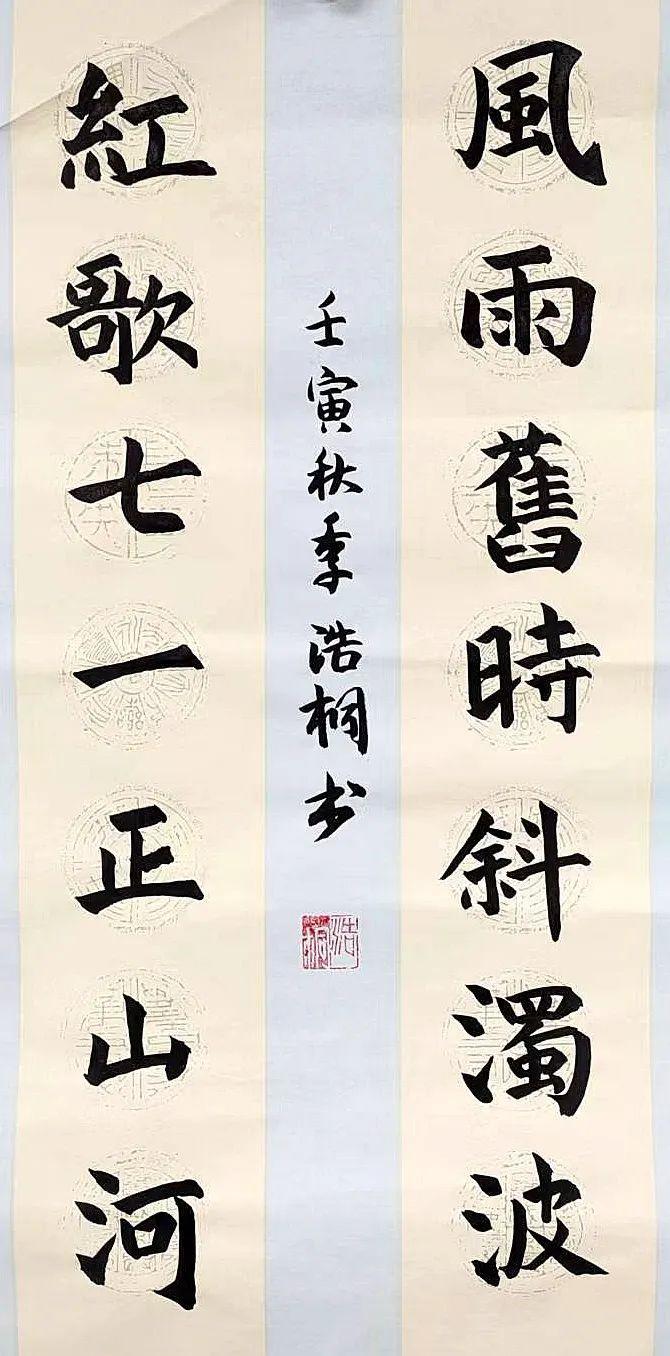 風雨舊時斜濁波
紅歌七一正山河
壬寅秋季浩桐书